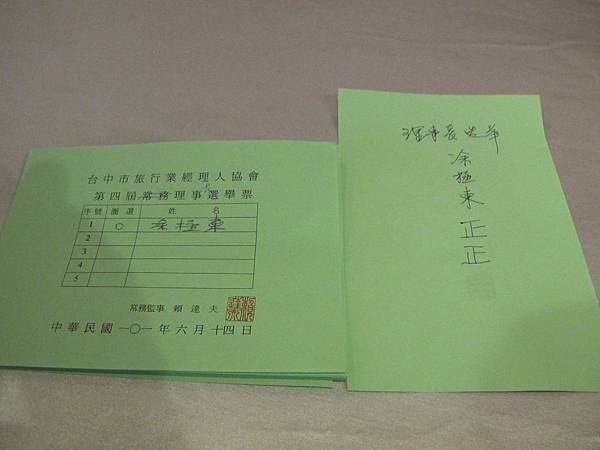 台中市旅行業經理人協會
第四屆常務理事選舉票
序號 圈選 姓名
1 ○ 涂極東
2
3
4
5
常務監事 賴達夫
中華民國一○一年六月十四日
理事長選舉
涂極東
正正